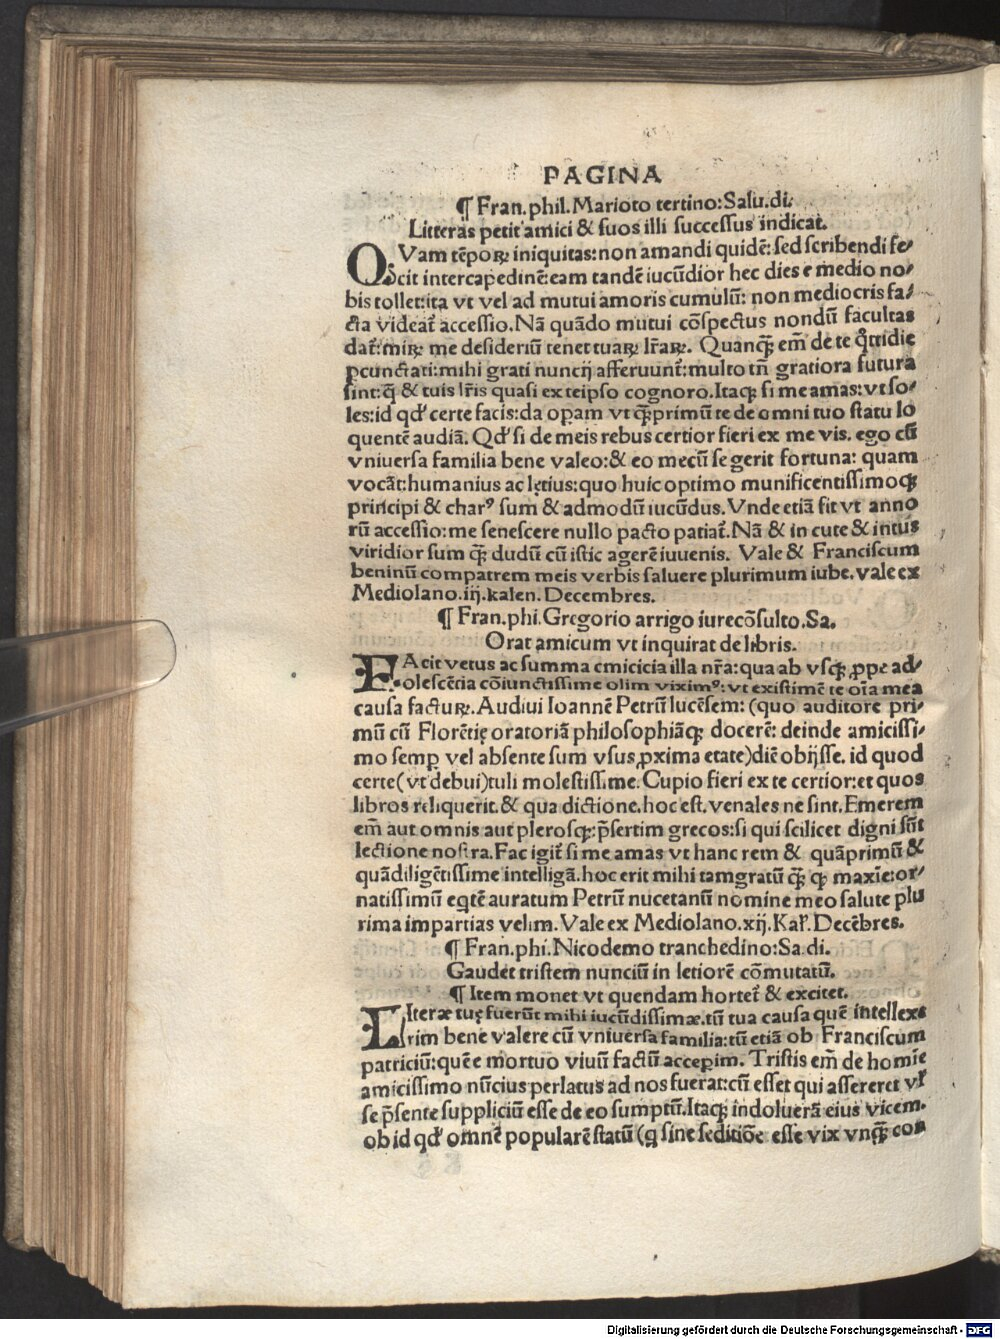 PAGINA
¶ Fran.phil.Marioto tertino:Salu.di.
Litteras petit amici & suos illi successus indicat.
QVam tēporꝝ iniquitas:non amandi quidē:sed scribendi fe⸗
cit intercapedinē:eam tandē iucūdior hec dies e medio no⸗
bis tollet:ita vt vel ad mutui amoris cumulū: non mediocris fa⸗
cta videat̄ accessio.Nā quādo mutui cōspectus nondū facultas
dat̄:mirꝝ me desideriū tenet tuarꝝ lr̄arꝝ. Quanqꝫ em̄ de te qͦttidię
ꝑcunctati:mihi grati nuncij afferuunt̄:multo tn̄ gratiora futura
sint:q̄ & tuis lr̄is quasi ex teipso cognoro.Itaqꝫ si me amas:vt so⸗
les:id qd' certe facis:da opam vt qꝫprimū te de omni tuo statu lo
quentē audiā. Qd' si de meis rebus certior fieri ex me vis. ego cū
vniuersa familia bene valeo:& eo mecū se gerit fortuna: quam
vocāt:humanius ac lętius:quo huic optimo munificentissimoqꝫ
principi & charꝰ sum & admodū iucūdus.Vnde etiā fit vt anno
rū accessio:me senescere nullo pacto patiat̄.Nā & in cute & intus
viridior sum qꝫ dudū cū istic agerē iuuenis. Vale & Franciscum
beninū compatrem meis verbis saluere plurimum iube.vale ex
Mediolano.iij.kalen.Decembres.
¶ Fran.phi.Gregorio arrigo iurecōsulto.Sa.
Orat amicum vt inquirat de libris.
FAcit vetus ac summa emicicia illa nr̄a:qua ab vsqꝫ ꝓpe ad⸗
olescētia cōiunctissime olim viximꝰ:vt existimē te oīa mea
causa facturꝝ.Audiui Ioannē Petrū lucēsem:(quo auditore pri⸗
mū cū Florētię oratoriā philosophiāqꝫ docerē: deinde amicissi⸗
mo semꝑ vel absente sum vsus ꝓxima etate)diē obijsse. id quod
certe(vt debui)tuli molestissime.Cupio fieri ex te certior:et quos
libros reliquerit.& qua dictione.hoc est.venales ne sint.Emerem
em̄ aut omnis aut plerosqꝫ:p̄sertim grecos:si qui scilicet digni sūt
lectione nostra.Fac igit̄ si me amas vt hanc rem & quāprimū &
quādiligētissime intelligā.hoc erit mihi tamgratū qꝫ qꝫ maxie:or⸗
natissimū eqtē auratum Petrū nucetanū nomine meo salute plu
rima impartias velim.Vale ex Mediolano.xij.Kal'.Decēbres.
¶ Fran.phi.Nicodemo tranchedino:Sa.di.
Gaudet tristem nunciū in letiorē cōmutatū.
¶ Item monet vt quendam hortet̄ & excitet.
LIteræ tuę fuerūt mihi iucūdissimæ.tū tua causa quē intellexe
rim bene valere cū vniuersa familia:tū etiā ob Franciscum
patriciū:quē e mortuo viuū factū accepim. Tristis em̄ de homīe
amicissimo nūcius perlatus ad nos fuerat:cū esset qui assereret vl'
se p̄sente suppliciū esse de eo sumptū.Itaqꝫ indoluerā eius vicem.
ob id qd' omnē popularē statū (q sine seditiōe esse vix vnqꝫ con
Digitalisierung gefördert durch die Deutsche Forschungsgemeinschaft - DFG